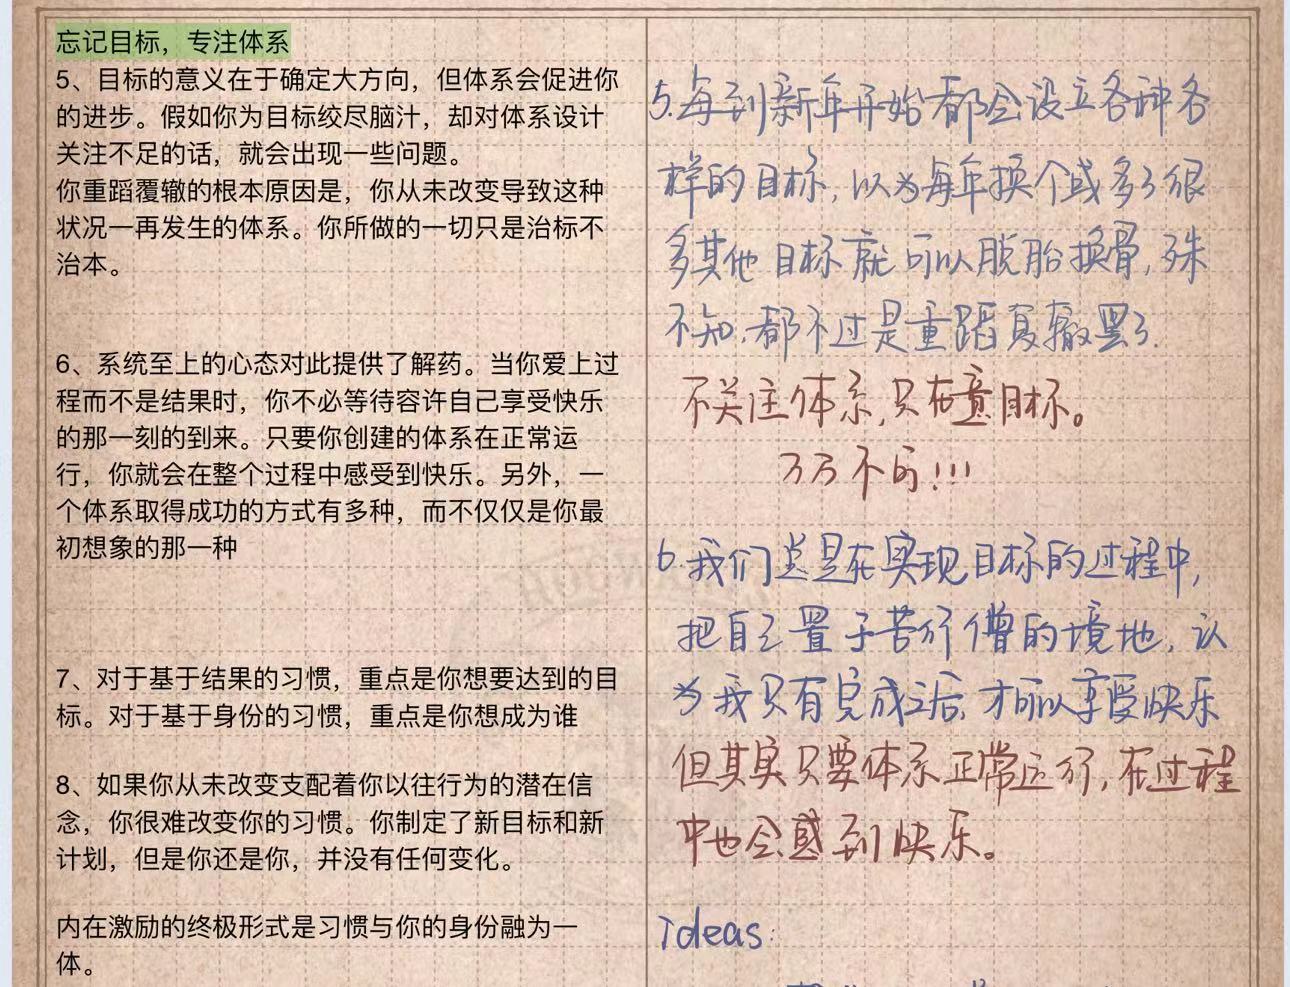 忘记目标，专注体系
5、目标的意义在于确定大方向，但体系会促进你
的进步。假如你为目标绞尽脑汁，却对体系设计
关注不足的话，就会出现一些问题。
你重蹈覆辙的根本原因是，你从未改变导致这种
状况一再发生的体系。你所做的一切只是治标不
治本。
6、系统至上的心态对此提供了解药。当你爱上过
程而不是结果时，你不必等待容许自己享受快乐
的那一刻的到来。只要你创建的体系在正常运
行，你就会在整个过程中感受到快乐。另外，一
个体系取得成功的方式有多种，而不仅仅是你最
初想象的那一种
7、对于基于结果的习惯，重点是你想要达到的目
标。对于基于身份的习惯，重点是你想成为谁
8、如果你从未改变支配着你以往行为的潜在信
念，你很难改变你的习惯。你制定了新目标和新
计划，但是你还是你，并没有任何变化。
内在激励的终极形式是习惯与你的身份融为一
体。
5.每到新年开始都会设立各种各
样的目标，以为每年换个或多了很
多其他目标就可以脱胎换骨，殊
不知，都不过是重蹈覆辙罢了.
不关注体系，只在意目标。
万万不的!!!
6.我们总是在实现目标的过程中，
把自己置于苦行僧的境地，认
为我只有完成之后，才可以享受快乐
但其实只要体系正常运行，在过程
中也会感到快乐。
Ideas: